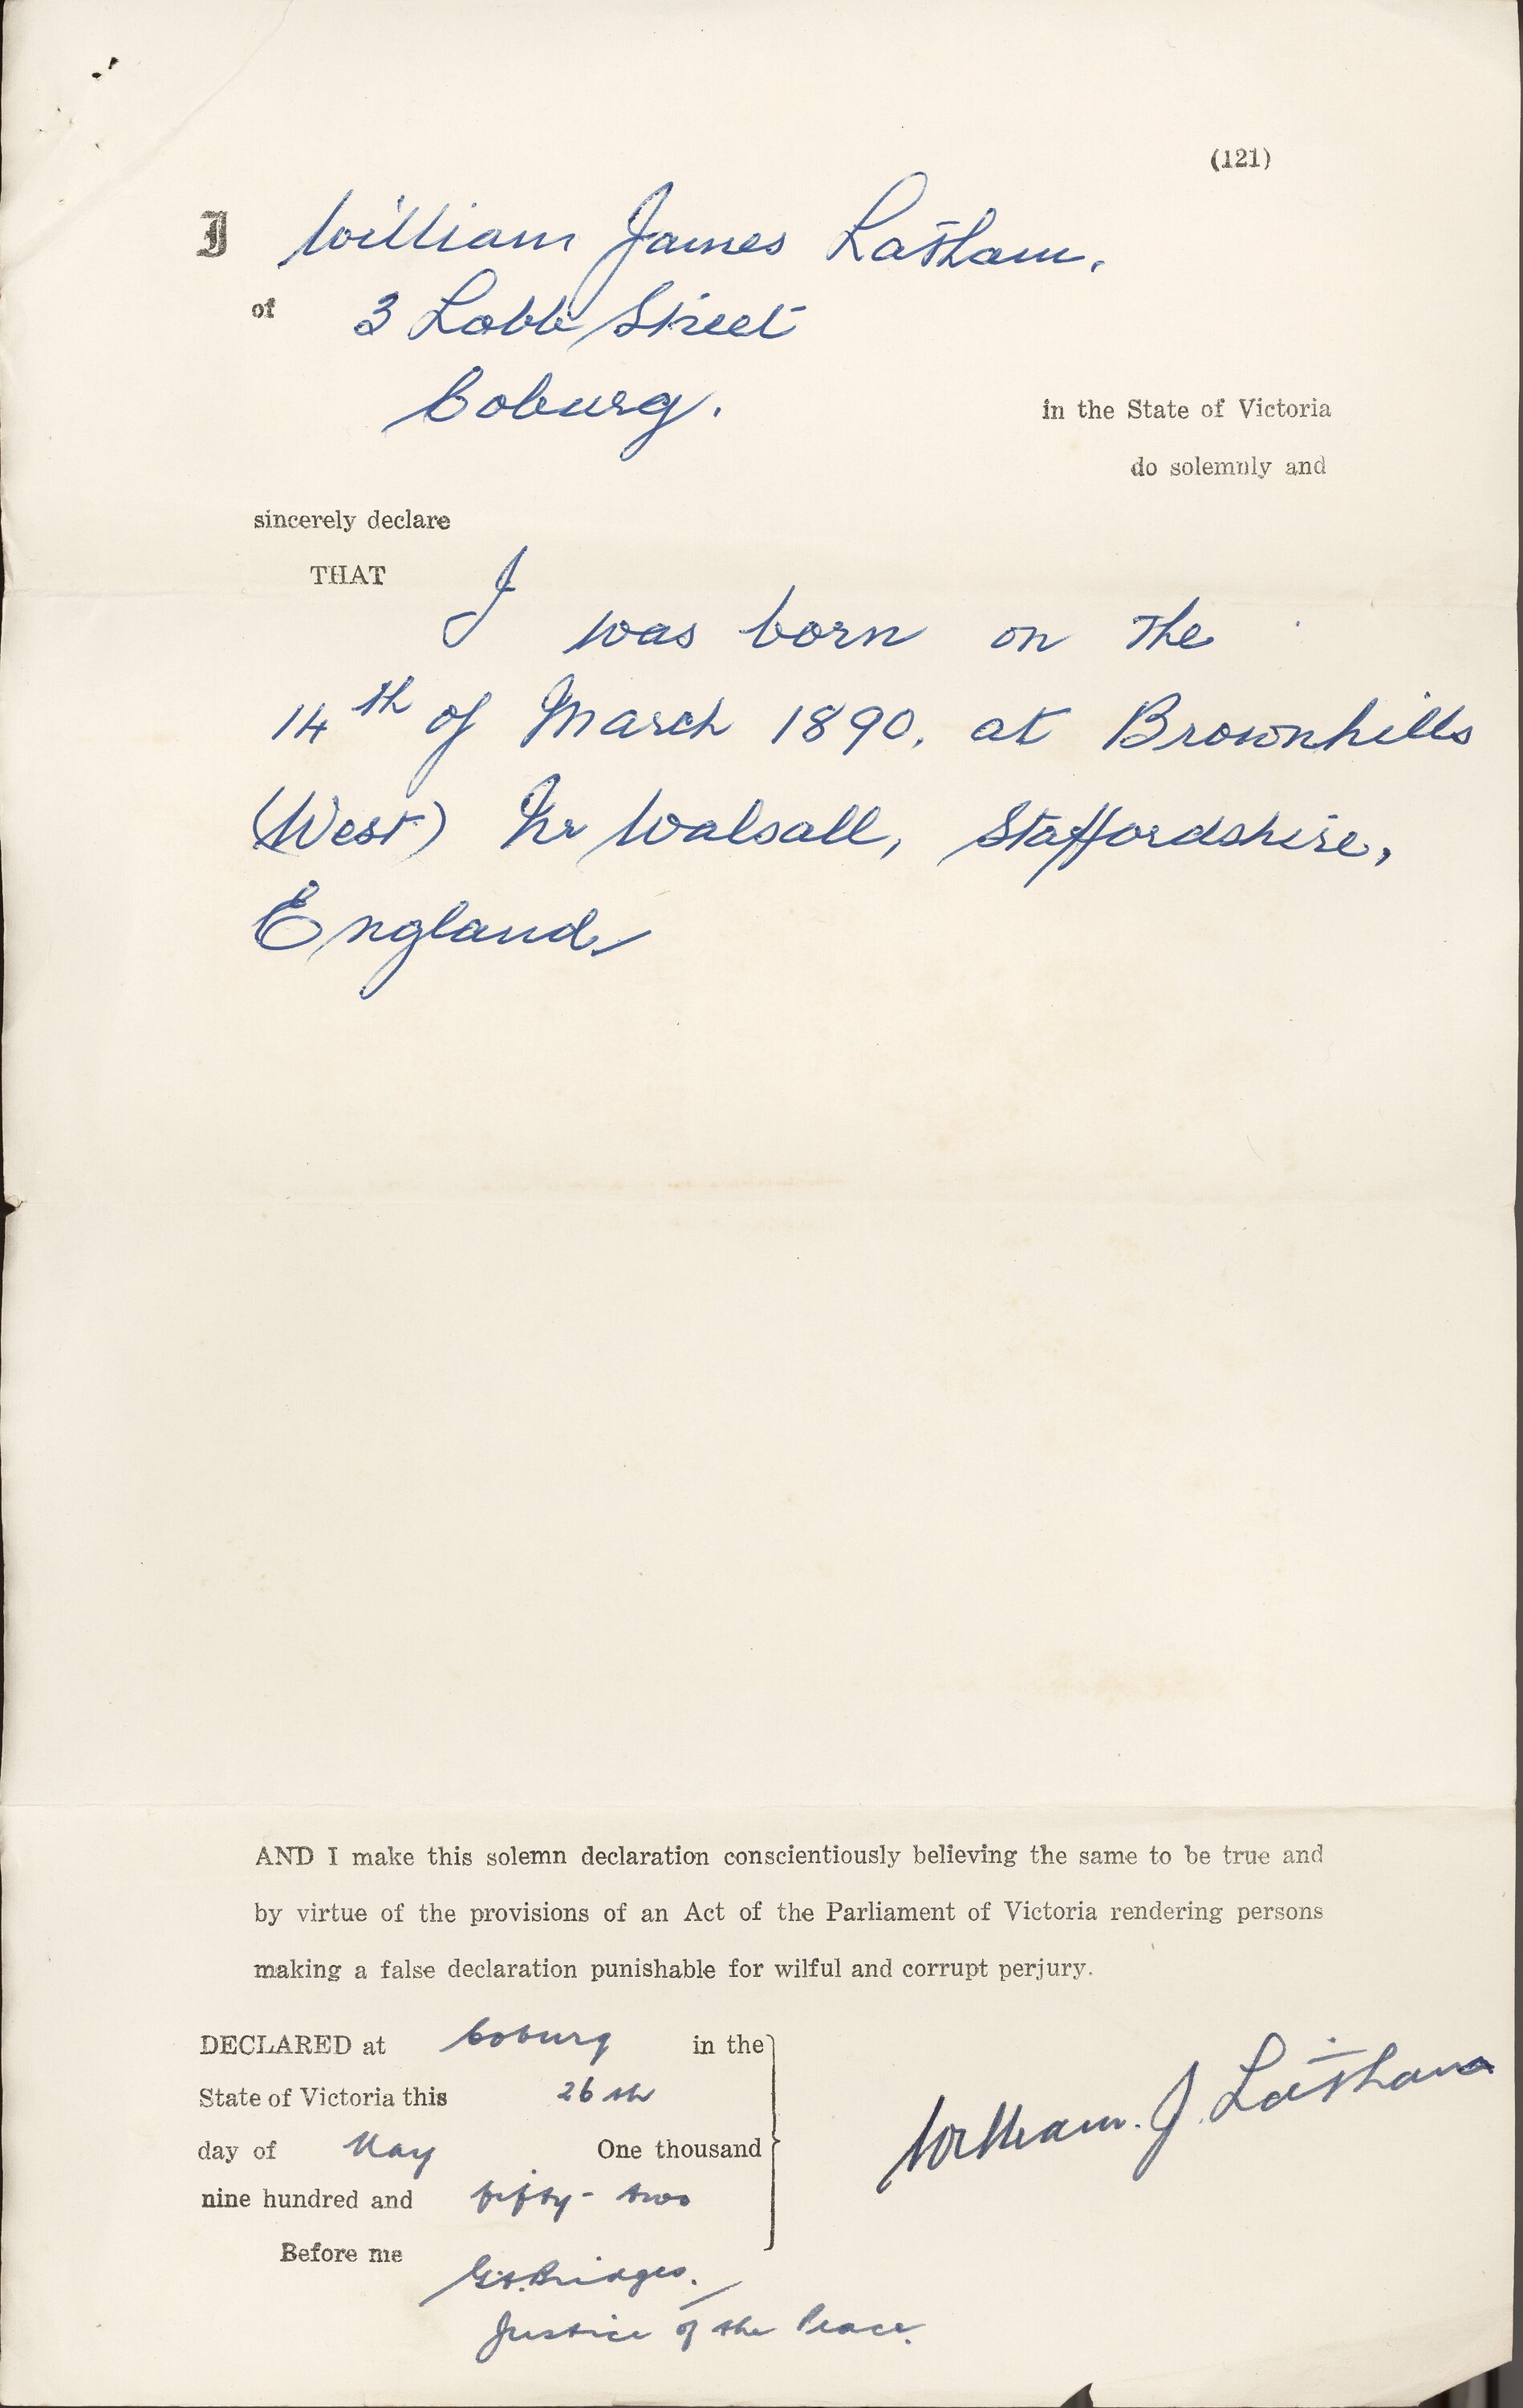 (121)
I William James Latham.
of 3 Lobb Street
Coburg. in the State of Victoria
do solemnly and
sincerely declare
THAT I was born on the
14th of March 1890. at Brownhills
(West) Nr Walsall, Staffordshire,
England.
AND I make this solemn declaration conscientiously believing the same to be true and
by virtue of the provisions of an Act of the Parliament of Victoria rendering persons
making a false declaration punishable for wilful and corrupt perjury.
DECLARED at Coburg in the
State of Victoria this 26th
day of May One thousand
nine hundred and fifty-two
William. J. Latham
Before me
Bridges.
Justice of the Peace.